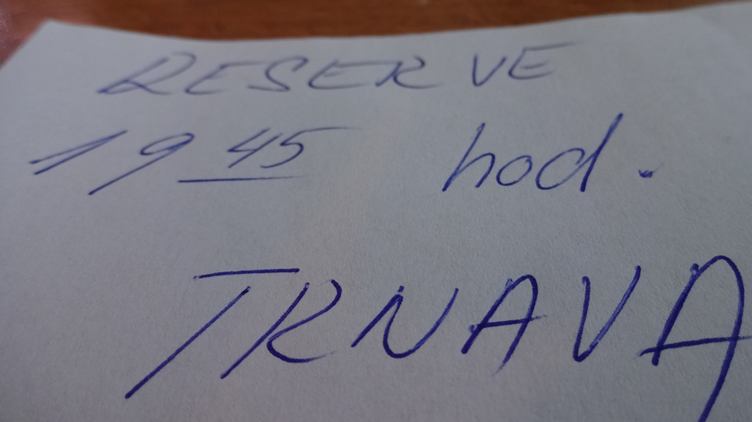 RESERVE
19 45 hod.
TRNAVA